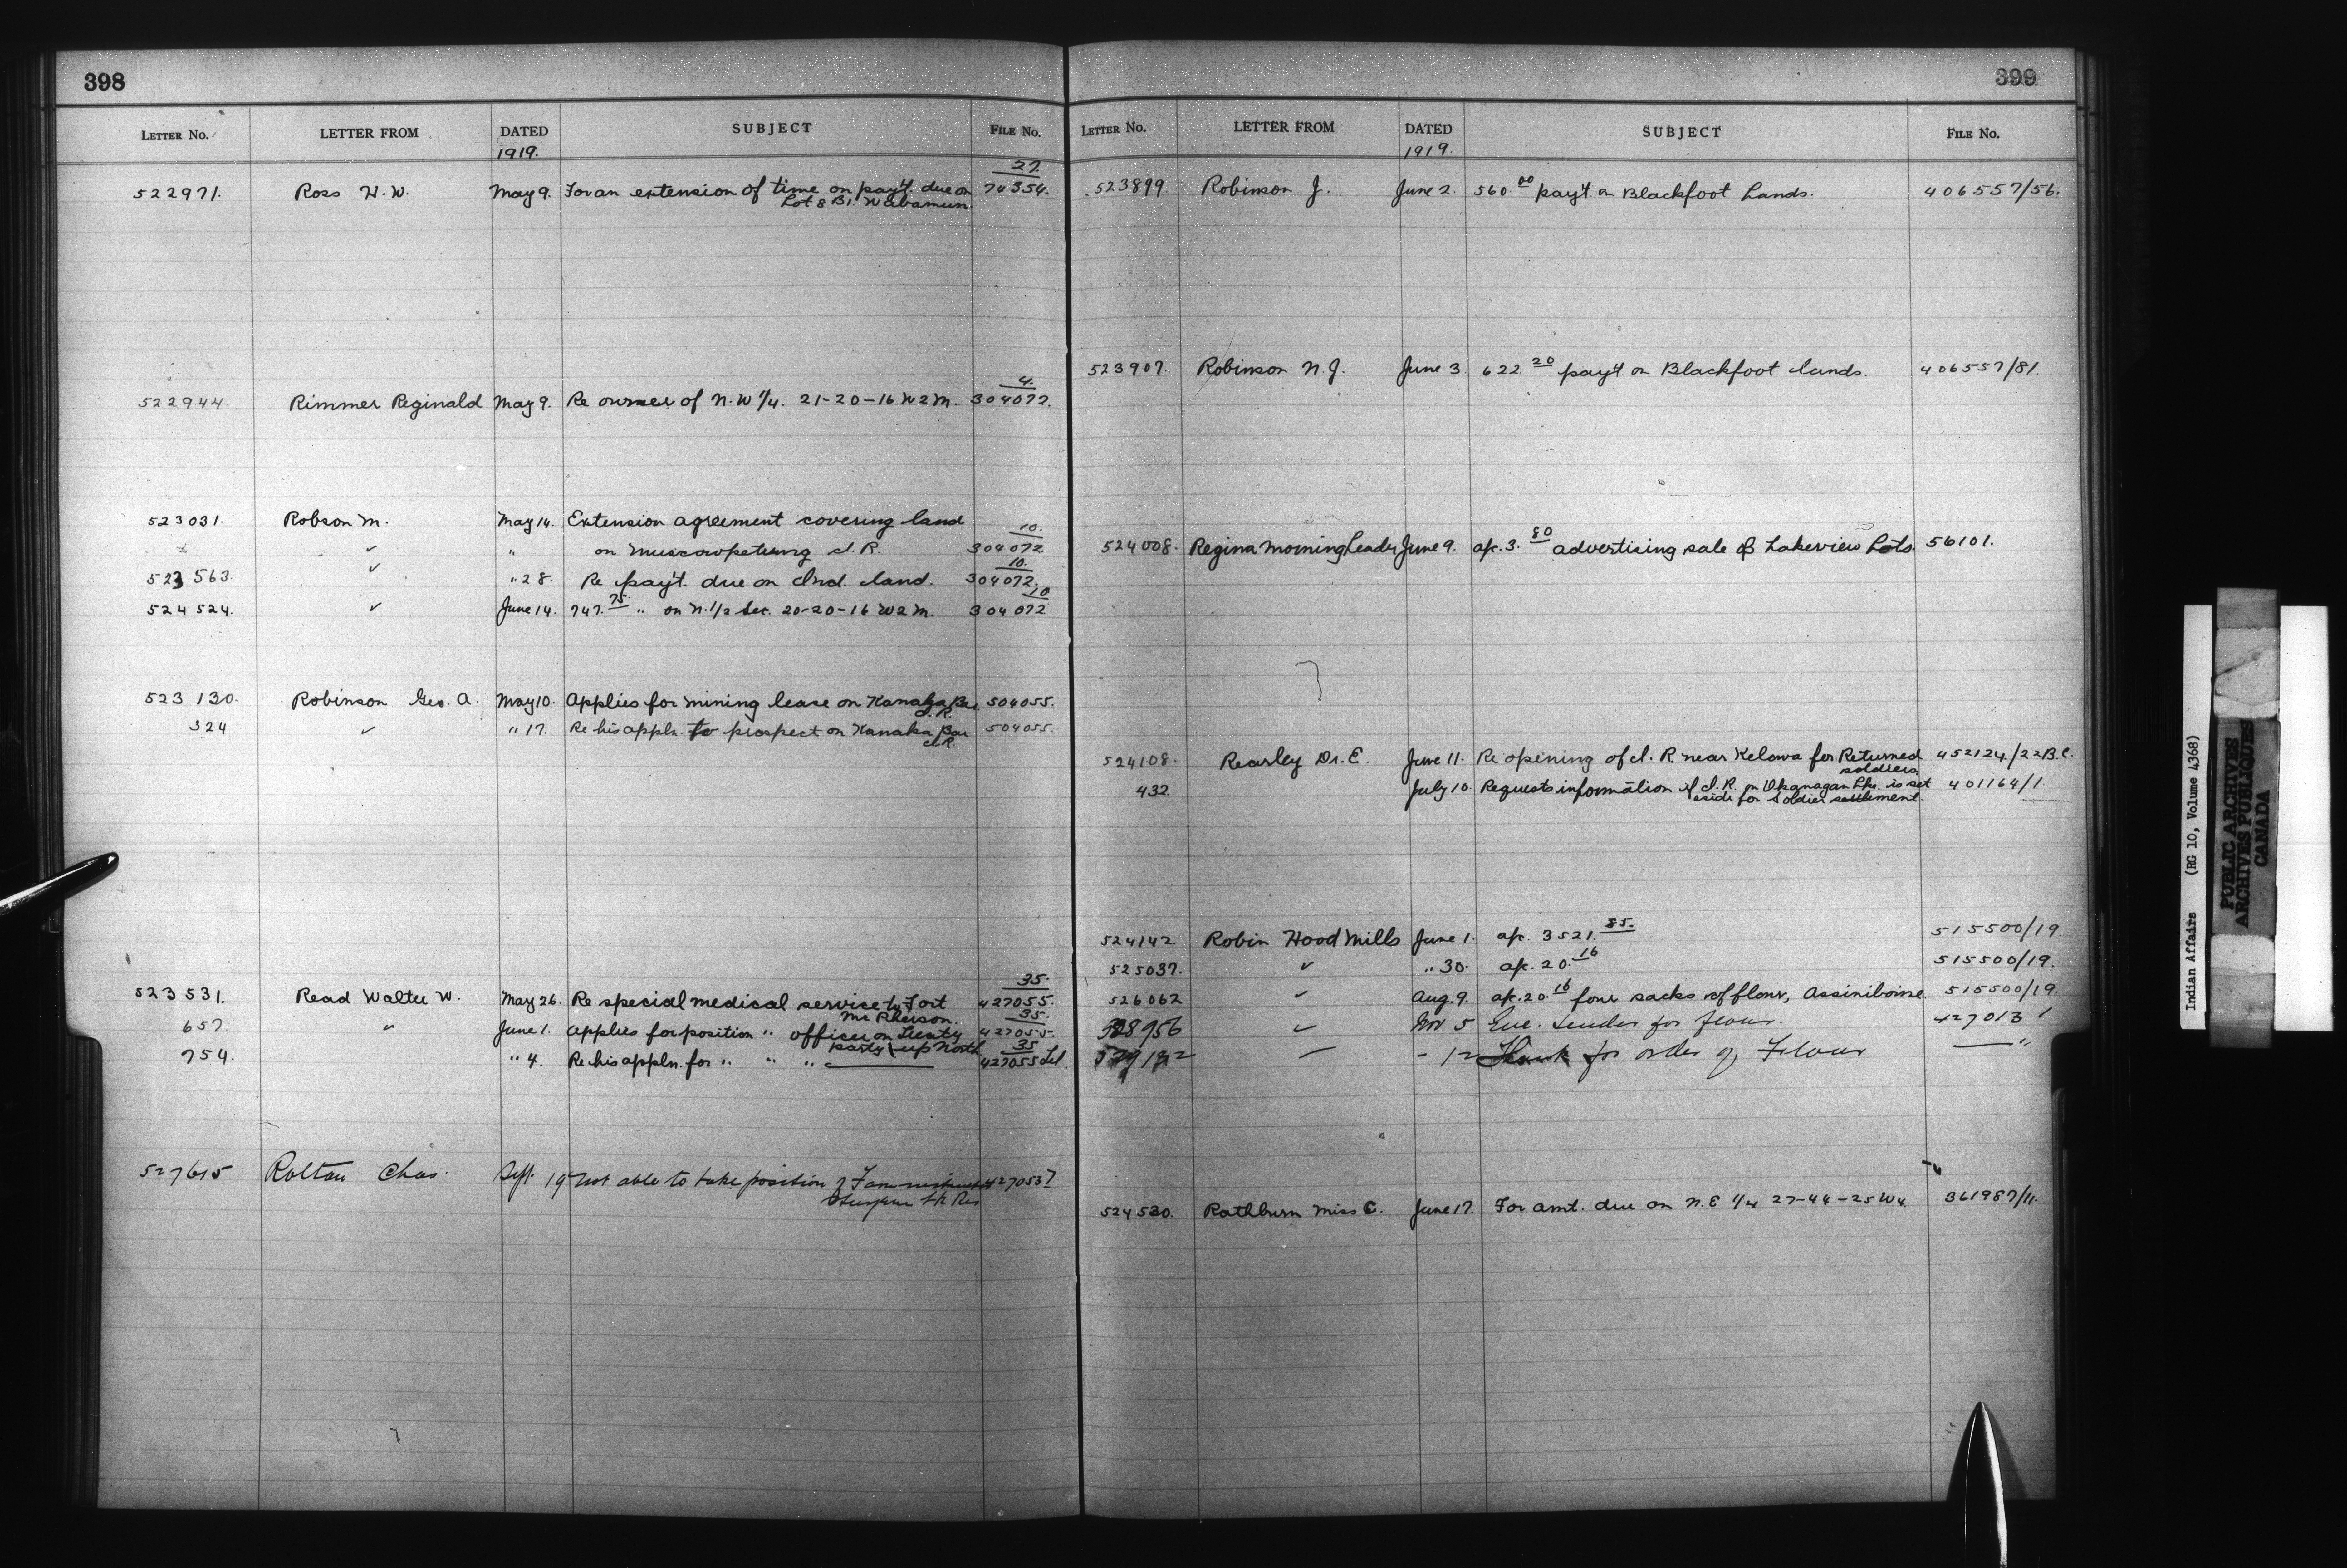 398
LETTER NO. LETTER FROM DATED SUBJECT FILE No.
1919.
27.
522971. Ross H. W. May 9. For an extension of time on pay't. due on 74354.
Lot 8 B1. Wabamun.
4.
522944 Rimmer Reginald May 9. Re owner of N.W 1/4. 21-20-16 W2M. 304072.
523031. Robson M. May 14. Extension agreement covering land
10.
✓ " on Muscowpetung I. R. 304072
10.
523563. ✓ " 28. Re pay't. due on Ind. land. 304072.
10
524524. ✓ June 14. 747.75 " on N.1/2 Sec. 20-20-16 W2M. 304072
523130. Robinson Geo. A. May 10. Applies for mining lease on Kanaka Bar 504055.
I.R.
324 ✓ " 17. Re his appln. to prospect on Kanaka Bar 504055.
I.R.
35.
523531. Read Walter W. May 26. Re special medical service to Fort 427055.
Mc Pherson. 35.
657. " June 1. Applies for position " officer on Treaty 427055.
party up North 35
754. " 4. Re his appln. for " " " 427055
527615 Rolton Chas. Sept. 19 Not able to take position of 427053 7
399
LETTER NO. LETTER FROM DATED SUBJECT FILE No.
1919.
523899. Robinson J. June 2. 560.00 pay't. on Blackfoot Lands. 406557/56.
523907. Robinson N. J. June 3. 622.20 pay't. on Blackfoot lands. 406557/81.
524008. Regina Morning Leader June 9. a/c. 3.80 advertising sale of Lakeview Lots. 56101.
524108. Rearley Dr. E. June 11. Re opening of I. R. near Kelowa for Returned 452124/22B.C.
soldiers.
432. July 10. Requests information if I. R. on Okanagan Lke. is set 401164/1
aside for Soldier settlement.
524142. Robin Hood Mills June 1. a/c. 3521.85. 515500/19.
525037. ✓ " 30. a/c. 20.16 515500/19.
526062 ✓ Aug. 9. a/c. 20.16 four sacks of flour, Assiniboine. 515500/19.
528956 ✓ Nov 5 Enc. tender for flour. 427013 1
- 12 Thank for order of Flour "
524530. Rathburn Miss C. June 17. For amt. due on N.E 1/4 27-44-25 W4. 361987/11.
Indian Affairs (RG 10, Volume 4368)
PUBLIC ARCHIVES
ARCHIVES PUBLIQUES
CANADA